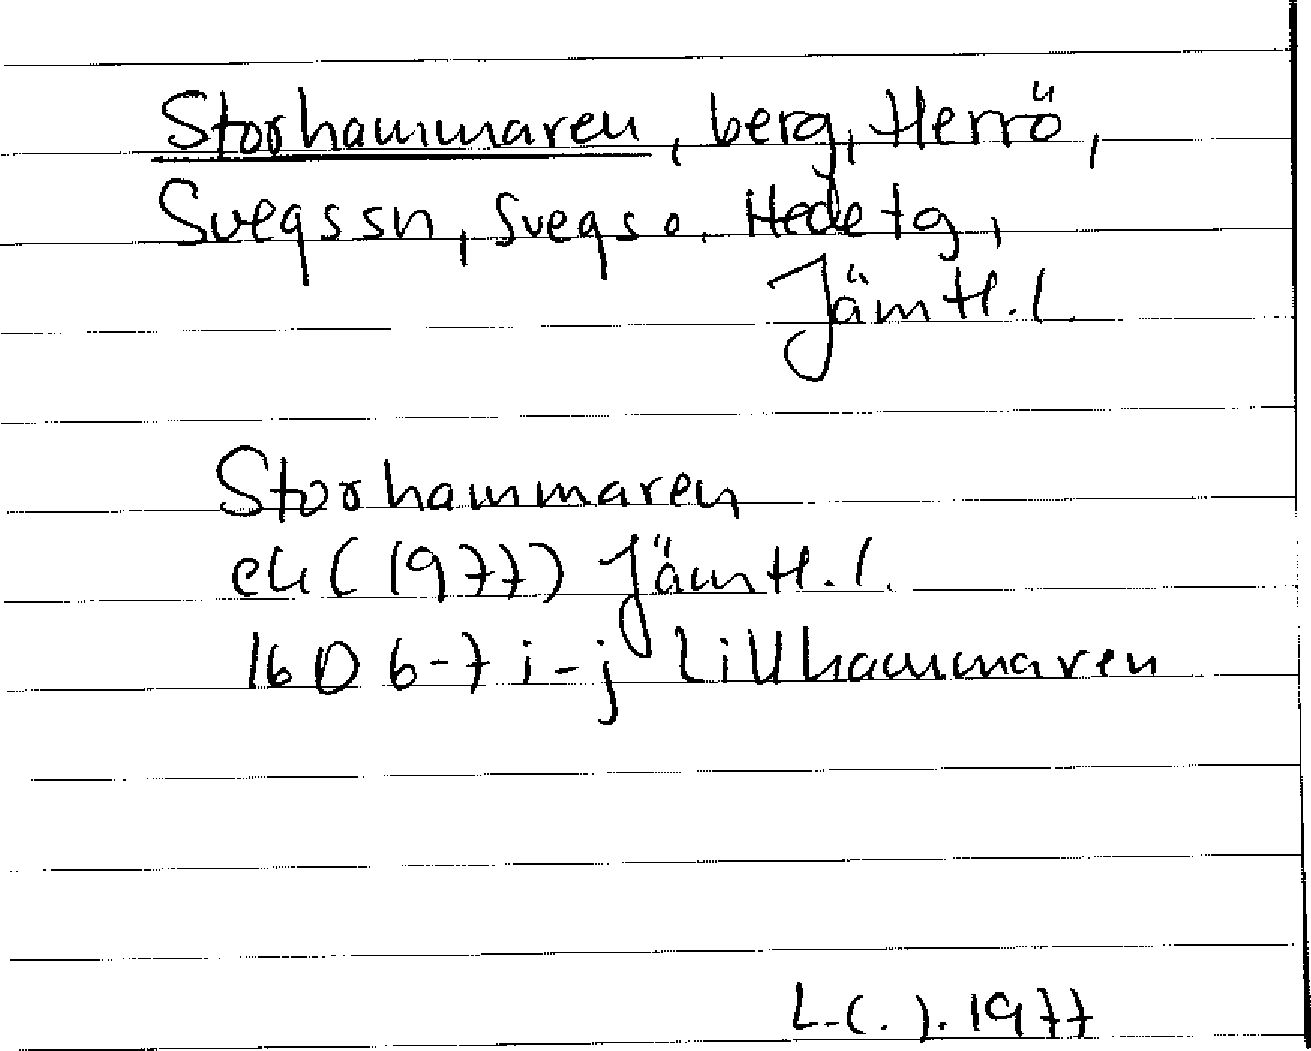 Storhammaren, berg, Herrö,
Svegssn, Svegs o. Hede tg,
Jämtl. l.
Storhammaren
ek (1977) Jämtl. l.
16 D 6-7 i-j Lillhammaren
L.(.). 1977